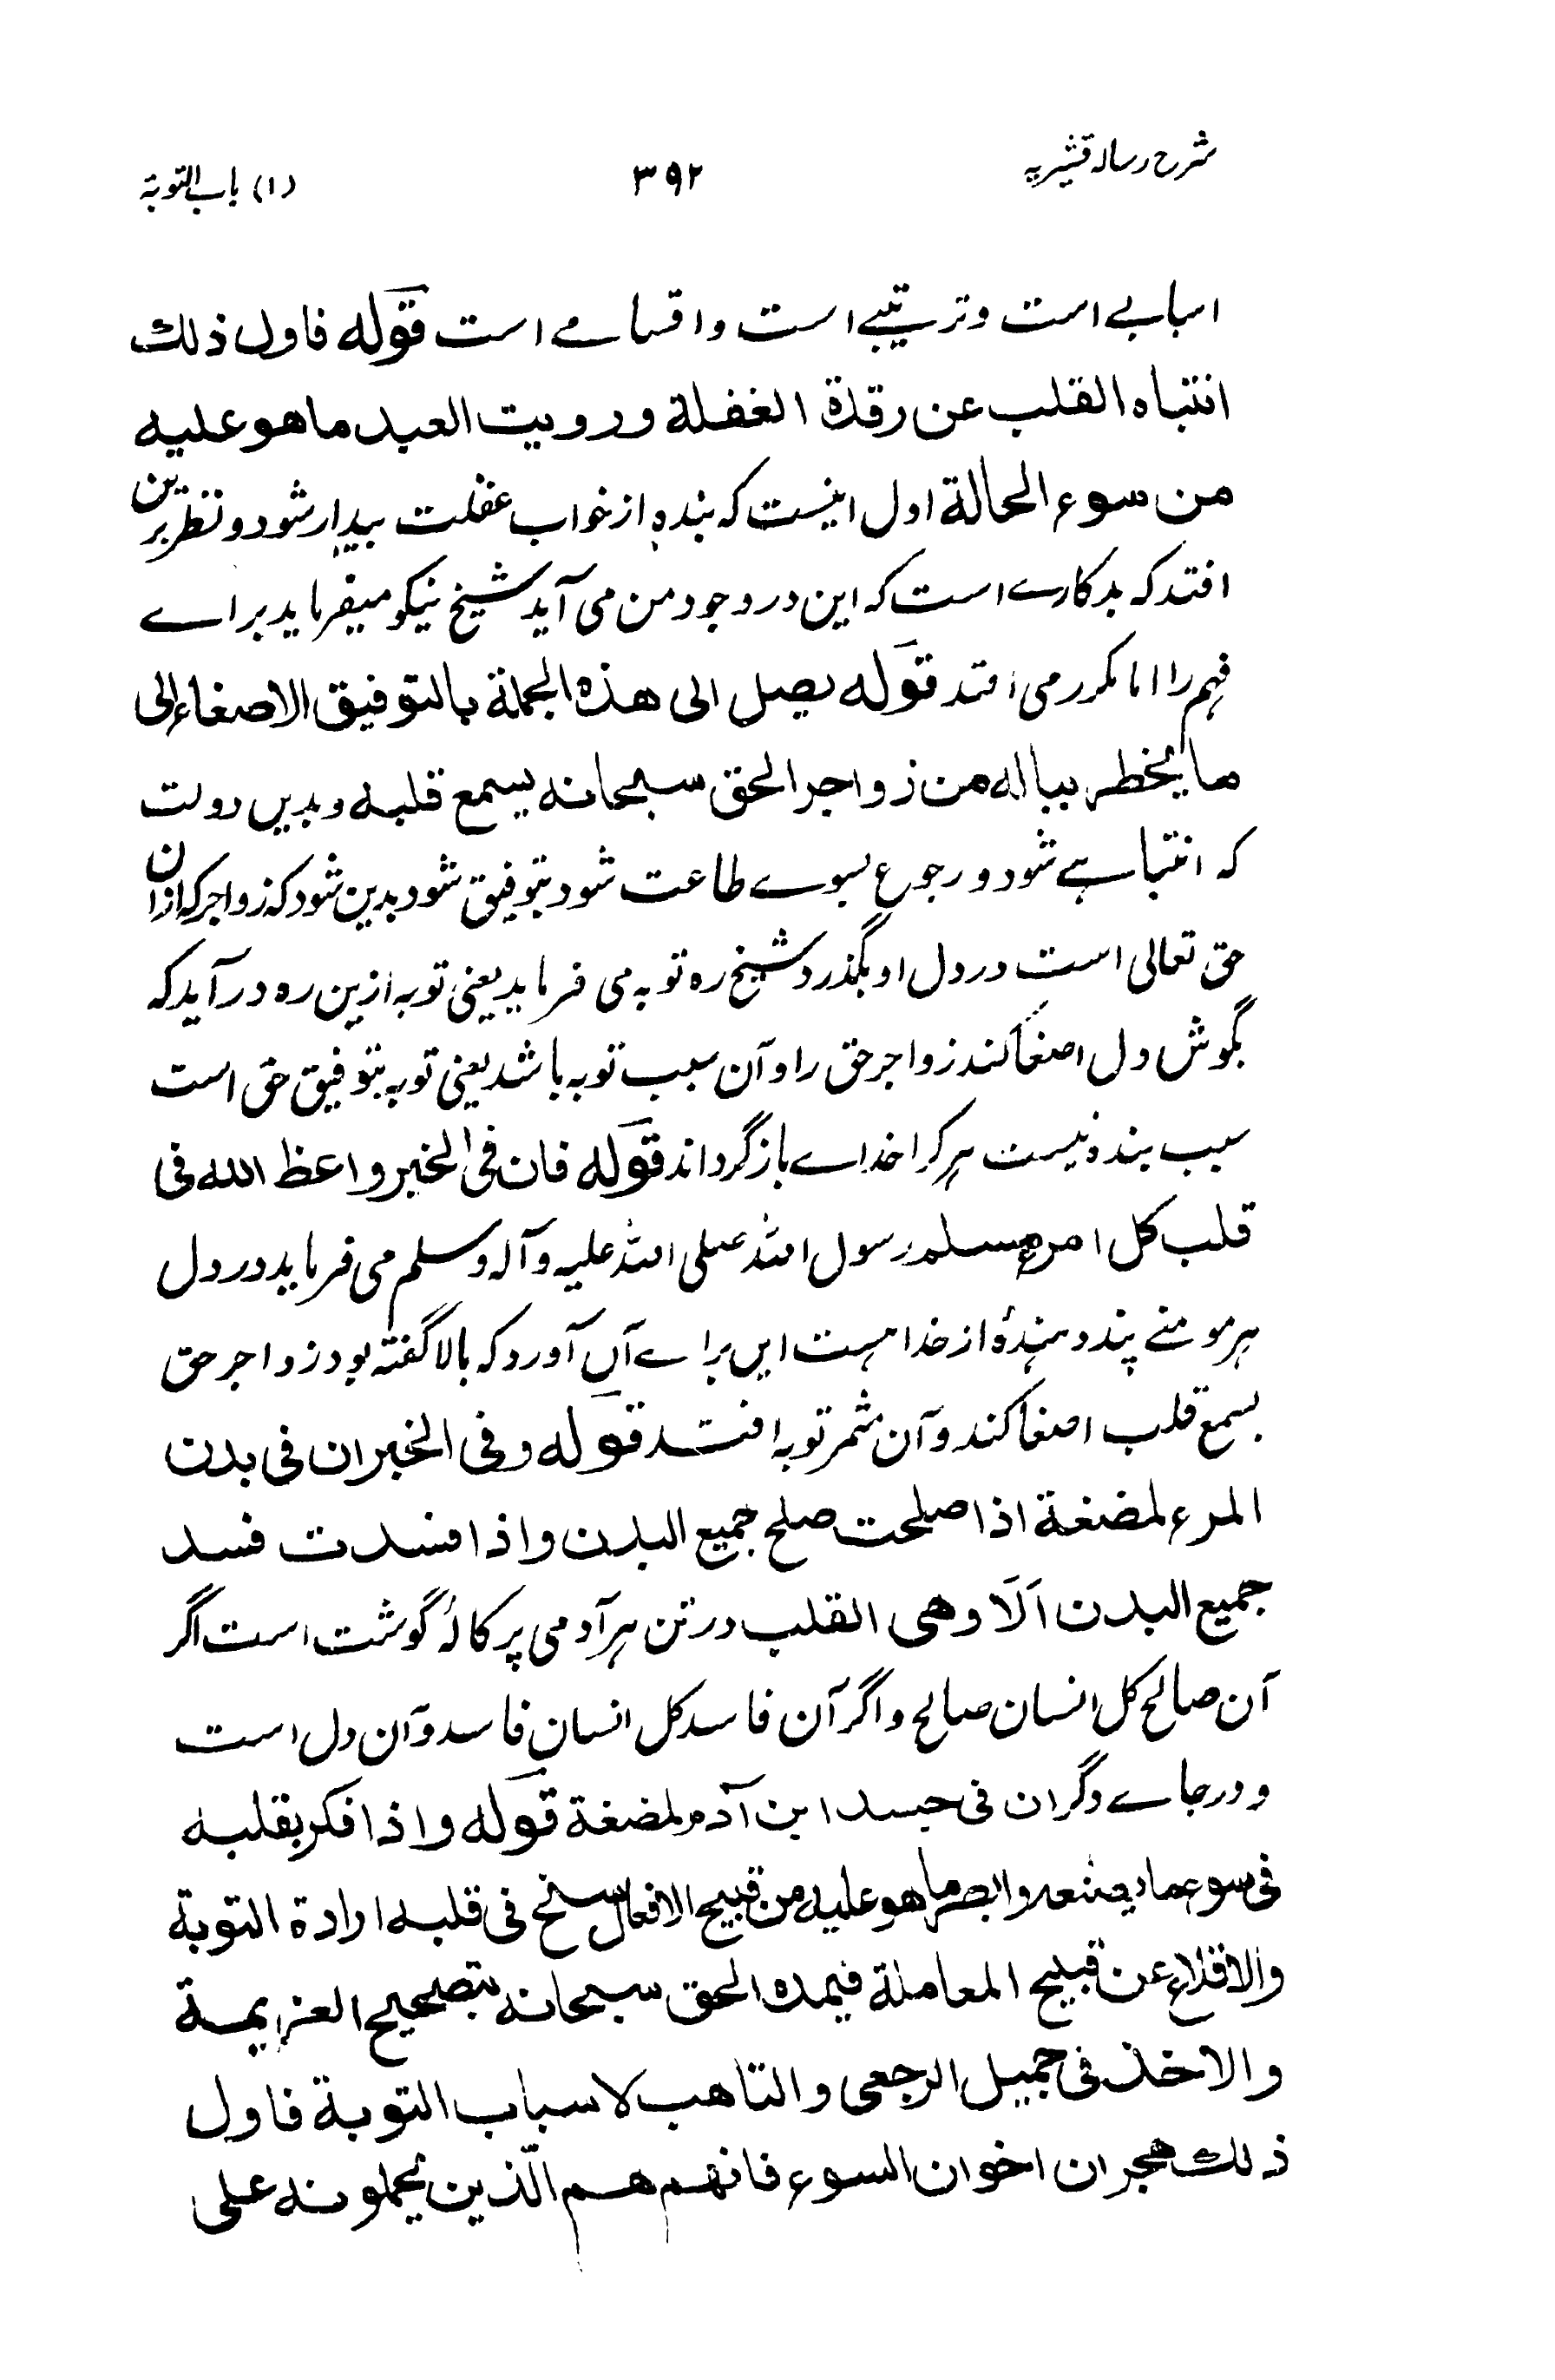 شرح رسالہ قشیریہ
۳۹۲
(۱) باب التوبۃ
اسبابے است و ترتیبے است و اقسامے است قوله فاول ذلك
انتباه القلب عن رقدة الغفلة و رویت العبد ما هو علیه
من سوء الحالة اول اینست که بنده از خواب غفلت بیدار شود و نظر برین
افتد که بدکارے است که این در وجود من می آید شیخ نیکو میفرماید براے
فهم را اما مکرر می افتد قوله یصل الی هذه الجملة بالتوفیق الاصغاء الی
ما یخطر بباله من زواجر الحق سبحانه یسمع قلبه و بدیں دولت
که انتباہے شود و رجوع بسوے طاعت شود بتوفیق شود بدین شود که زواجر که ازان
حق تعالی است در دل او بگذرد شیخ ره توبه می فرماید یعنی توبه ازین ره در آید که
بگوش دل اصغا کند زواجر حق را و آن سبب توبه باشد یعنی توبه بتوفیق حق است
سبب بنده نیست هر کرا خداے باز گرداند قوله فان فی الخبر واعظ الله فی
قلب کل امرء مسلم رسول اللہ صلی اللہ علیه و آله وسلم می فرماید در دل
هر مومنے پند دهندۂ از خدا هست ایں براے آں آورد که بالا گفته بود زواجر حق
بسمع قلب اصغا کند و آن مثمر توبه افتد قوله و فی الخبر ان فی بدن
المرء لمضغة اذا صلحت صلح جمیع البدن و اذا فسدت فسد
جمیع البدن اَلَا وهی القلب در تن هر آدمی پرکالۂ گوشت است اگر
آن صالح کل انسان صالح و اگر آن فاسد کل انسان فاسد و آن دل است
و در جاے دگر ان فی جسد ابن آدم لمضغة قوله و اذا فکر بقلبه
فی سوء ما یصنعه و ابصر ما هو علیه من قبیح الافعال سنح فی قلبه ارادة التوبة
والاقلاع عن قبیح المعاملة فیمده الحق سبحانه بتصحیح العزیمة
والاخذ فی جمیل الرجعی والتاهب لاسباب التوبة فاول
ذلك هجران اخوان السوء فانهم هم الّذین یحملونه علی